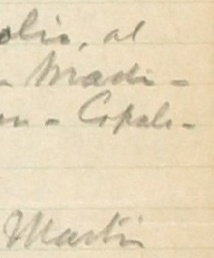 olis, al
- Madi -
n - Copale -
Martin